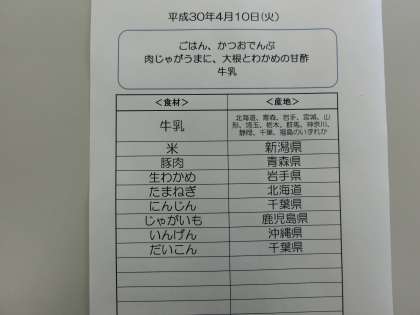 平成30年4月10日(火)
ごはん、かつおでんぶ
肉じゃがうまに、大根とわかめの甘酢
牛乳
＜食材＞ ＜産地＞
牛乳 北海道、青森、岩手、宮城、山
形、埼玉、栃木、群馬、神奈川、
静岡、千葉、福島のいずれか
米 新潟県
豚肉 青森県
生わかめ 岩手県
たまねぎ 北海道
にんじん 千葉県
じゃがいも 鹿児島県
いんげん 沖縄県
だいこん 千葉県